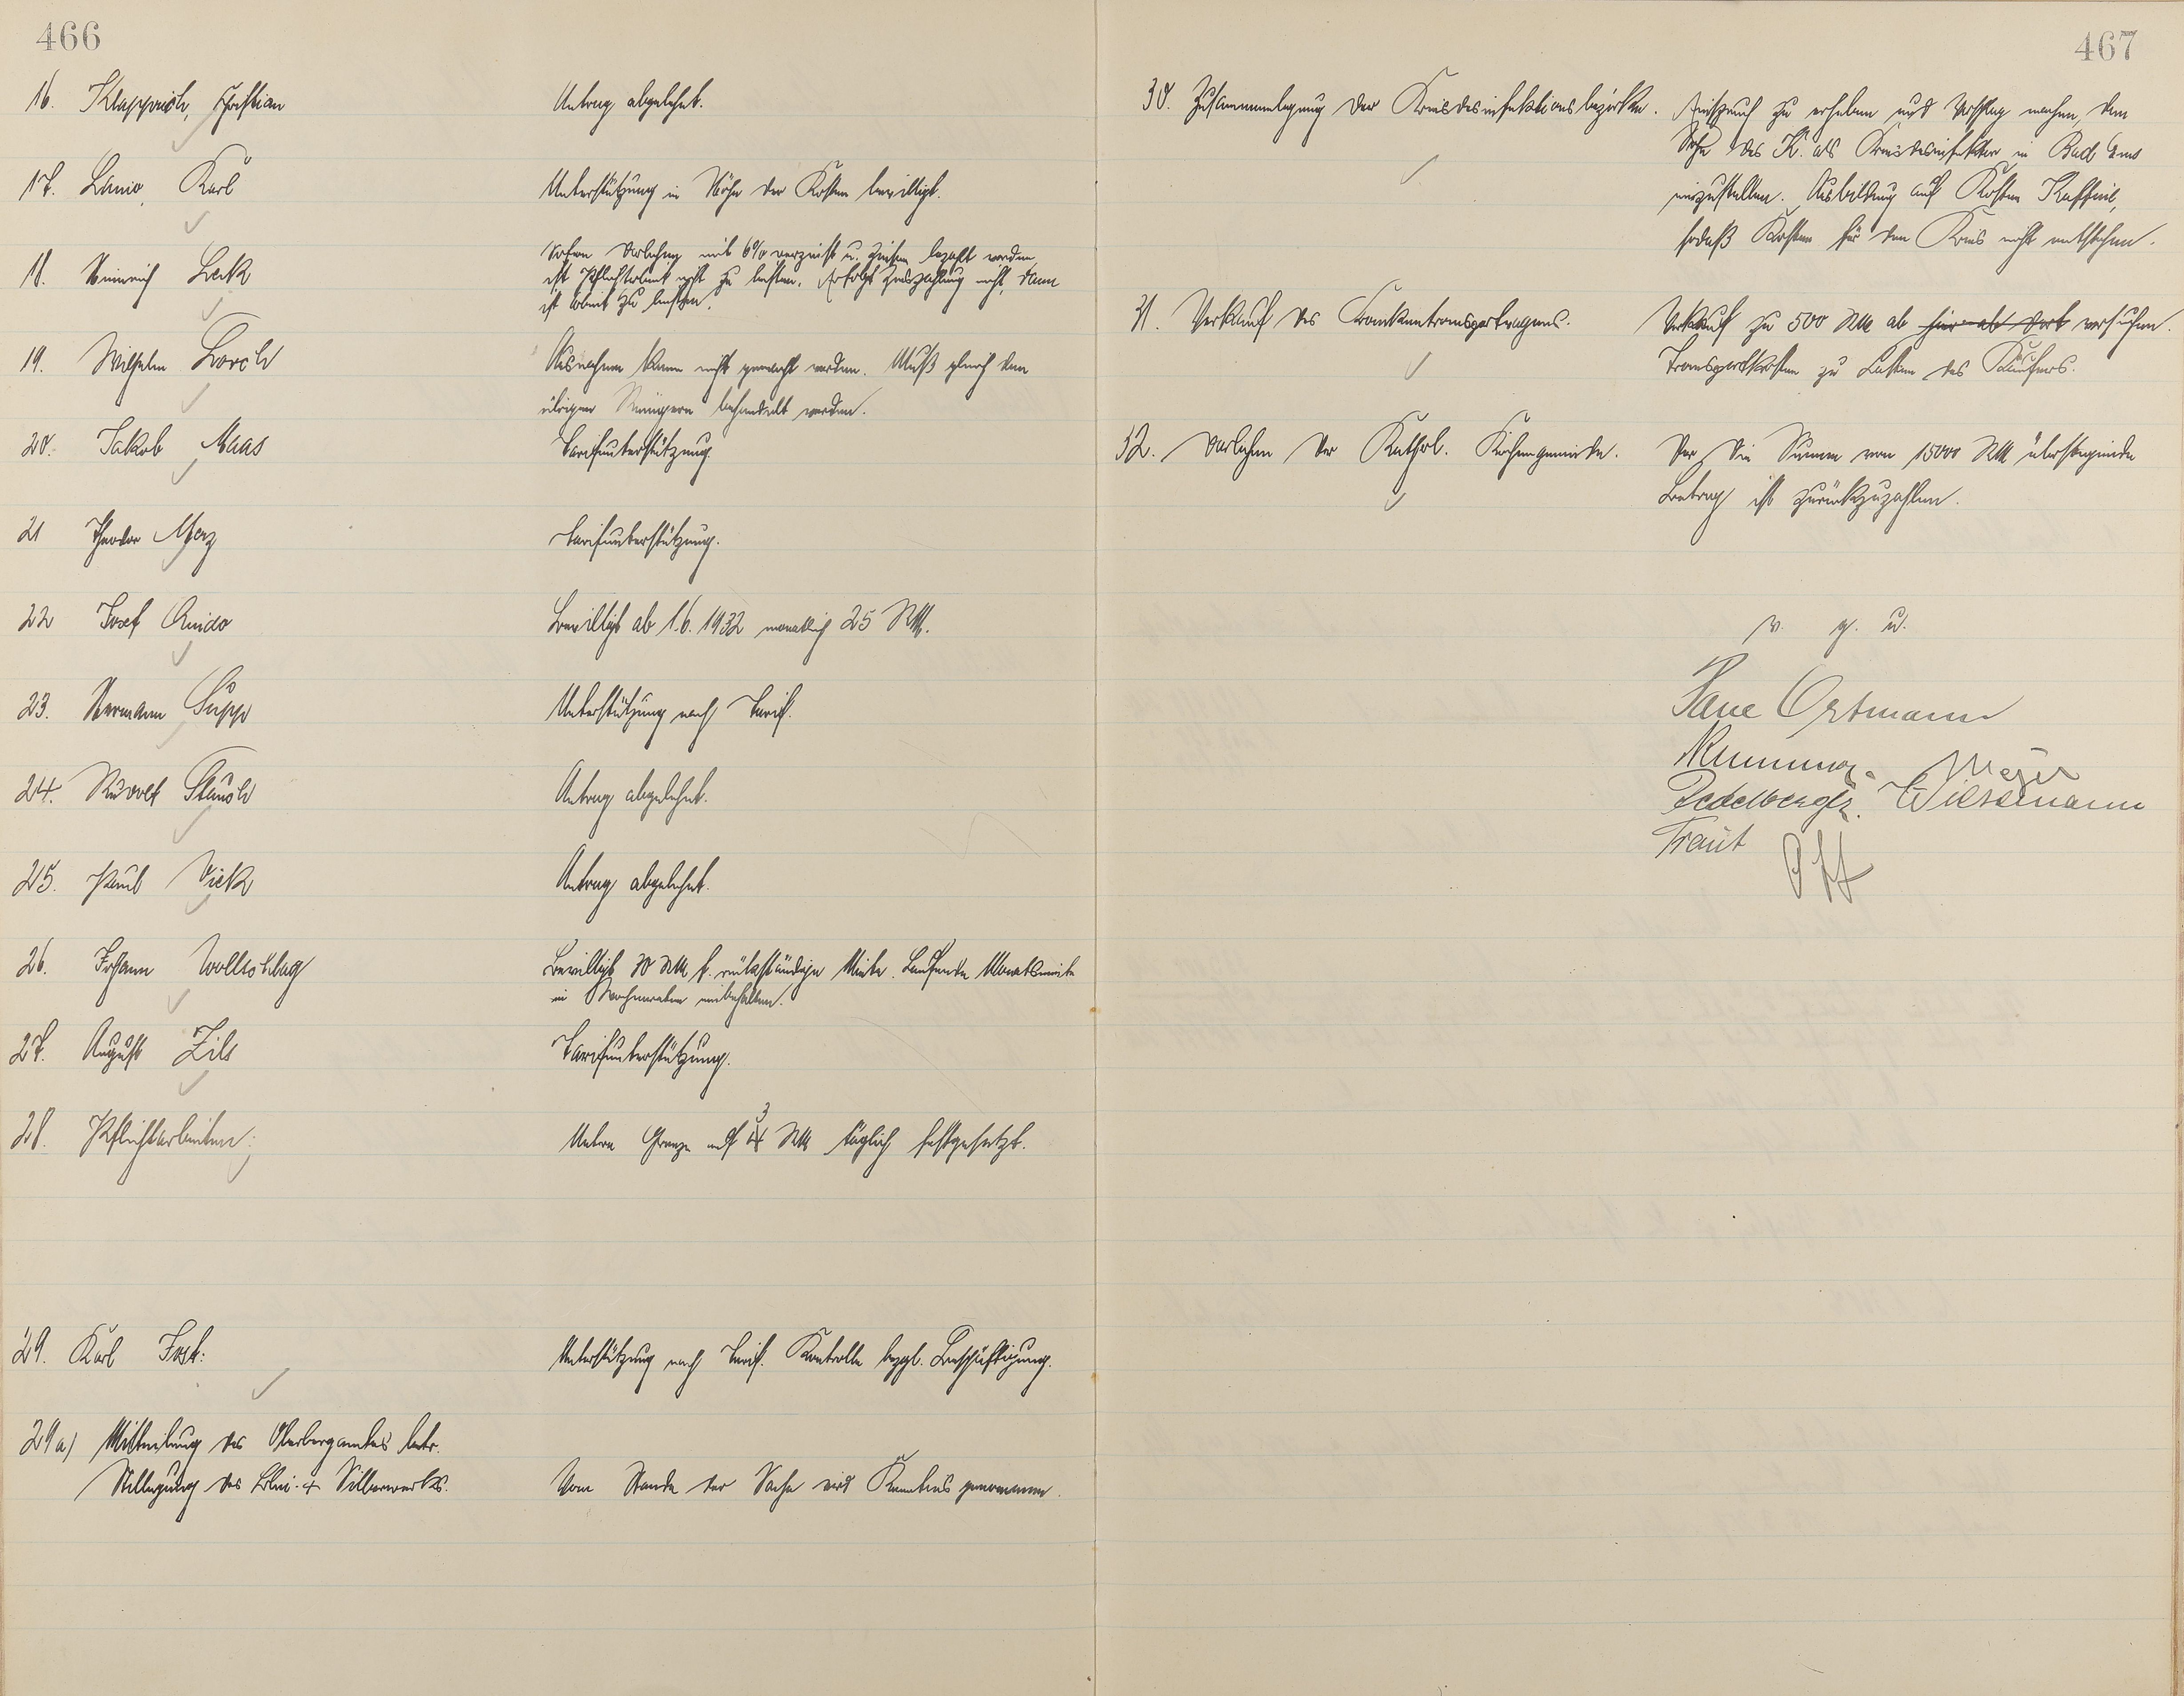 466
16. Klapprich, Christian
Antrag abgelehnt.
17. Karl
Unterstützung in Höhe der Kosten bewilligt.
18. Heinrich Leck
Sofern Darlehen mit 6% verzinst u. Zinsen bezahlt werden,
ist Pflichtarbeit nicht zu leisten. Erfolgt Zinszahlung nicht, dann
ist Arbeit zu leisten.
19. Wilhelm Lorch
Ausnahme kann nicht gemacht werden. Muß gleich den
übrigen behandelt werden.
20. Jakob Maas
Tarifunterstützung.
21 Theodor Merz
Tarifunterstützung.
22 Josef
Bewilligt ab 1.6.1932 monatlich 25 RM.
23. Hermann Supp
Unterstützung nach Tarif.
24. Rudolf
Antrag abgelehnt.
25. Paul Vick
Antrag abgelehnt.
26. Johann Wollschlag
Bewilligt 30 RM f. rückständige Miete. Laufende Monatsmiete
in Wochenraten einbehalten.
27. August Zils
Tarifunterstützung.
28. Pflichtarbeiten;
Untere Grenze auf 3 RM täglich festgesetzt.
29. Karl Jost:
Unterstützung nach Tarif. Kontrolle bezgl. Beschäftigung.
29a) Mitteilung des Oberbergamtes betr.
Stillegung des Blei- + Silberwerks.
Vom Stande der Sache wird Kenntnis genommen.
467
30. Zusammenlegung der Kreisdesinfektionsbezirke.
Einspruch zu erheben und Vorschlag machen, den
Sohn des K. als Kreisdesinfektor in Bad Ems
einzustellen. Ausbildung auf Kosten
sodaß Kosten für den Kreis nicht entstehen.
31. Verkauf des Krankentransportwagens.
Verkauf zu 500 RM ab hier ab dort versuchen.
Transportkosten zu Lasten des Käufers.
32. Darlehen der Kathol. Kirchengemeinde.
Der die Summe von 15000 RM übersteigende
Betrag ist zurückzuzahlen.
v. g. u.
Ortmann
Meyer
Wiessmann
Traut